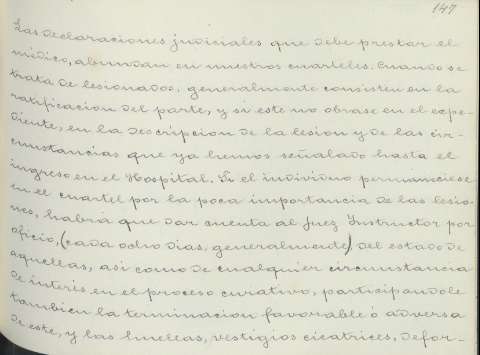 147
Las declaraciones judiciales que debe prestar el
médico, abundan en nuestros cuarteles. Cuando se
trata de lesionados, generalmente consisten en la
ratificacion del parte, y si este no obrase en el expe-
diente, en la descripcion de la lesion y de las cir-
cunstancias que ya hemos señalado hasta el
ingreso en el Hospital. Si el individuo permaneciese
en el cuartel por la poca importancia de las lesio-
nes, habrá que dar cuenta al Juez Instructor por
oficio, (cada ocho dias, generalmente) del estado de
aquellas, asi como de cualquier circunstancia
de interés en el proceso curativo, participandole
tambien la terminacion favorable ó adversa
de este, y las huellas, vestigios cicatrices, defor-